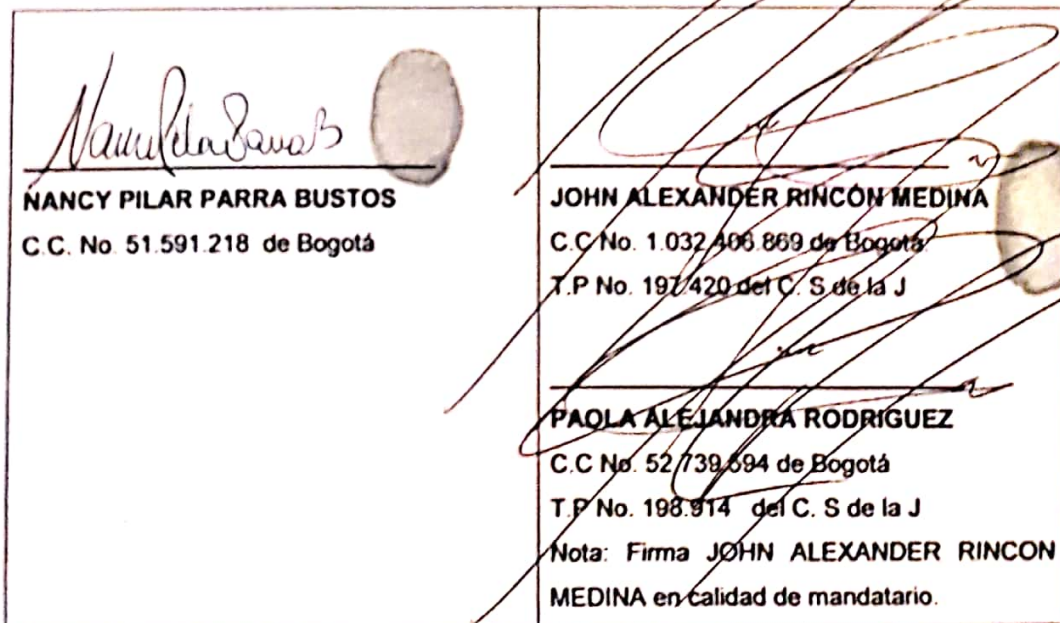 Nancy Pilar Parra B
NANCY PILAR PARRA BUSTOS
C.C. No. 51.591.218 de Bogotá
JOHN ALEXANDER RINCÓN MEDINA
C.C No. 1.032.406.869 de Bogotá.
T.P No. 197.420 del C. S de la J
PAOLA ALEJANDRA RODRIGUEZ
C.C No. 52.739.594 de Bogotá
T.P No. 198.914 del C. S de la J
Nota: Firma JOHN ALEXANDER RINCON
MEDINA en calidad de mandatario.